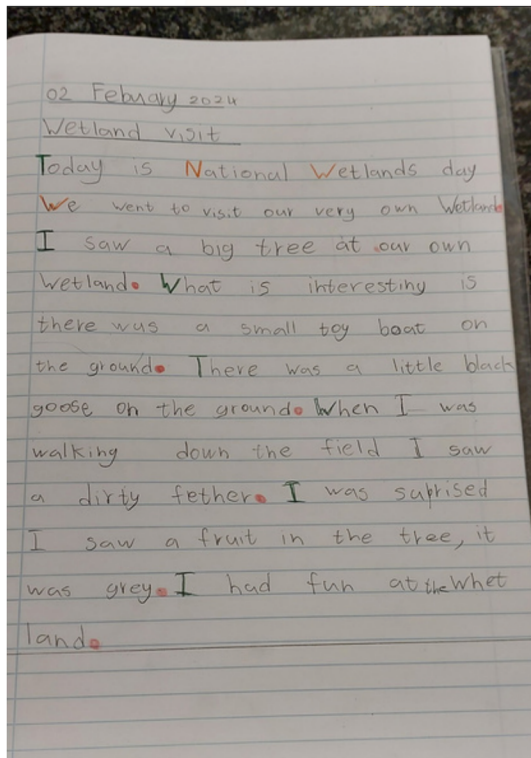 02 Febuary 2024
Wetland visit
Today is National Wetlands day
We went to visit our very own Wetland.
I saw a big tree at our own
wetland. What is interesting is
there was a small toy boat on
the ground. There was a little black
goose on the ground. When I was
walking down the field I saw
a dirty fether. I was suprised
I saw a fruit in the tree, it
was grey. I had fun at the Whet
land.